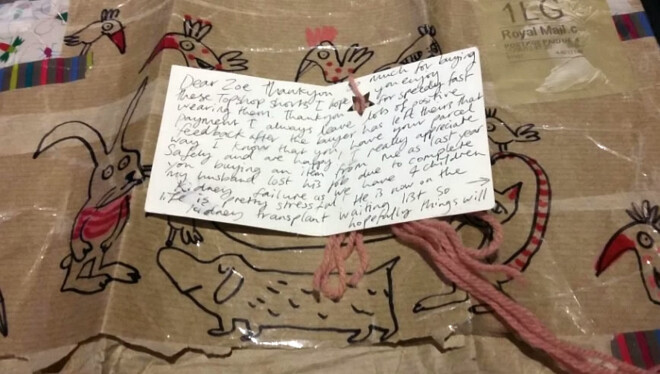 1LG
Royal Mail
Dear Zoe Thankyou much for buying
these Topshop shorts I hope you enjoy
wearing them. Thankyou for speedy fast
payment I always leave lots of positive
feedback after the buyer has left theirs that
way I know that you have your parcel
safely and are happy. I really appreciate
you buying an item from me as last year
my husband lost his job due to complete
kidney failure as we have 4 children
life is pretty stressful. He is now on the
kidney transplant waiting list so
hopefully things will